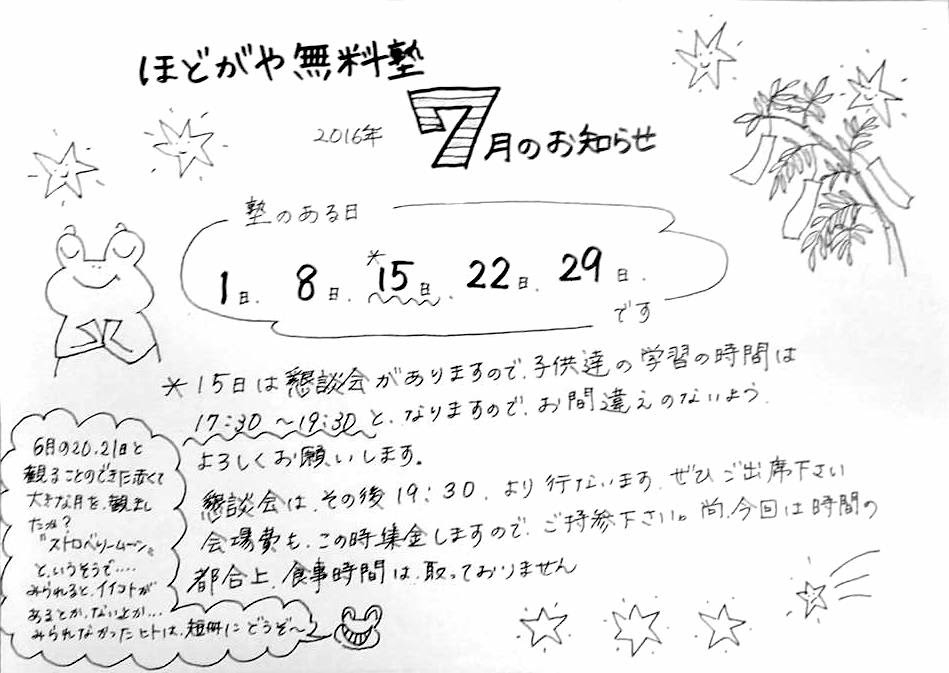 ほどがや無料塾
2016年 7月のお知らせ
塾のある日
1日、8日、*15日、22日、29日、
です
*15日は懇談会がありますので、子供達の学習の時間は
17:30〜19:30と、なりますので、お間違えのないよう、
よろしくお願いします。
懇談会は、その後19:30、より行ないます、ぜひご出席下さい
会場費も、この時集金しますので、ご持参下さい。尚、今回は時間の
都合上、食事時間は、取っておりません
6月の20、21日と
観ることのできた赤くて
大きな月を、観まし
たか?
"ストロベリームーン"
と、いうそうで‥‥
みられると、イイコトが
あるとか、ないとか…
みられなかったヒトは、短冊にどうぞ〜